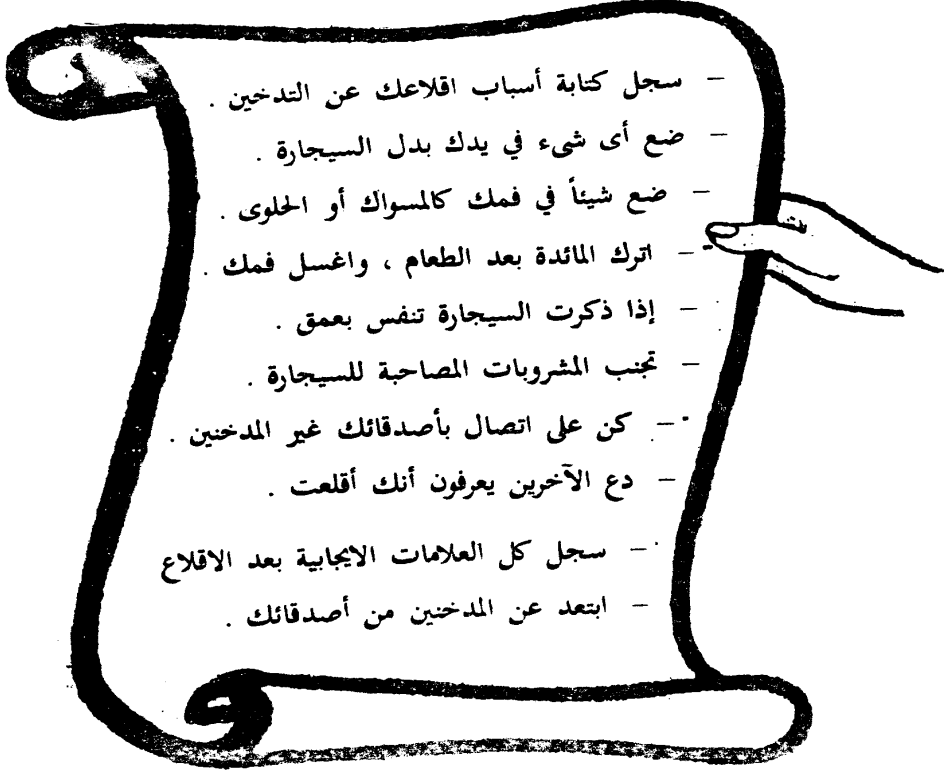 – سجل كتابة أسباب اقلاعك عن التدخين .
– ضع أى شىء في يدك بدل السيجارة .
– ضع شيئاً في فمك كالمسواك أو الحلوى .
– اترك المائدة بعد الطعام ، واغسل فمك .
– إذا ذكرت السيجارة تنفس بعمق .
– تجنب المشروبات المصاحبة للسيجارة .
– كن على اتصال بأصدقائك غير المدخنين .
– دع الآخرين يعرفون أنك أقلعت .
– سجل كل العلامات الايجابية بعد الاقلاع
– ابتعد عن المدخنين من أصدقائك .